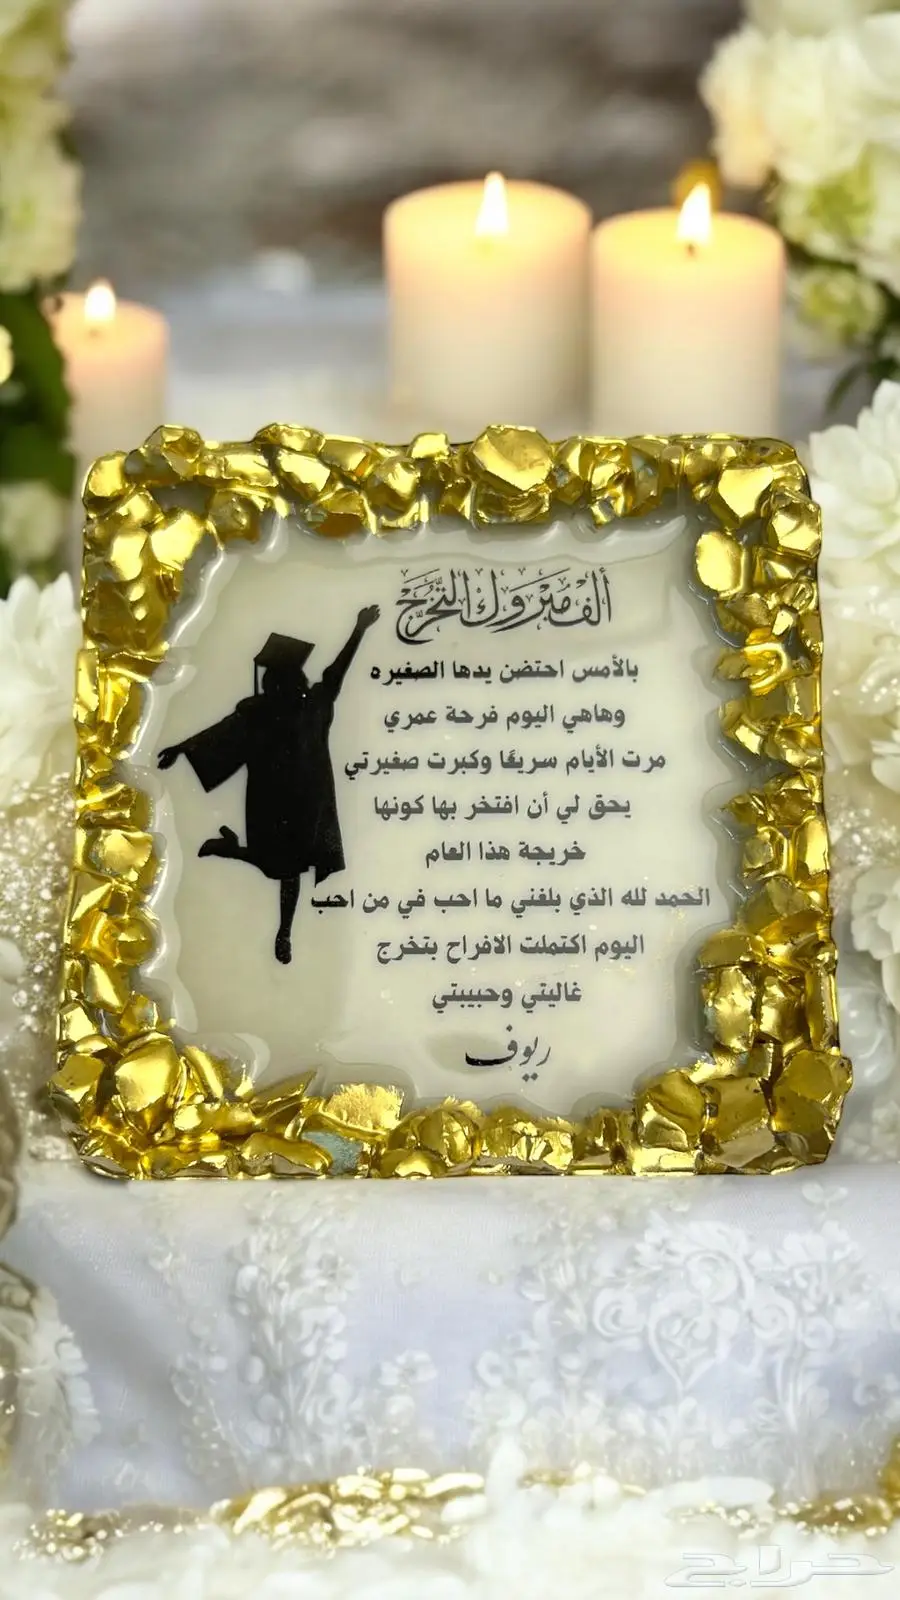 ألف مبروك التخرج
بالأمس احتضن يدها الصغيره
وهاهي اليوم فرحة عمري
مرت الأيام سريعًا وكبرت صغيرتي
يحق لي أن افتخر بها كونها
خريجة هذا العام
الحمد لله الذي بلغني ما احب في من احب
اليوم اكتملت الافراح بتخرج
غاليتي وحبيبتي
ريوف
حراج